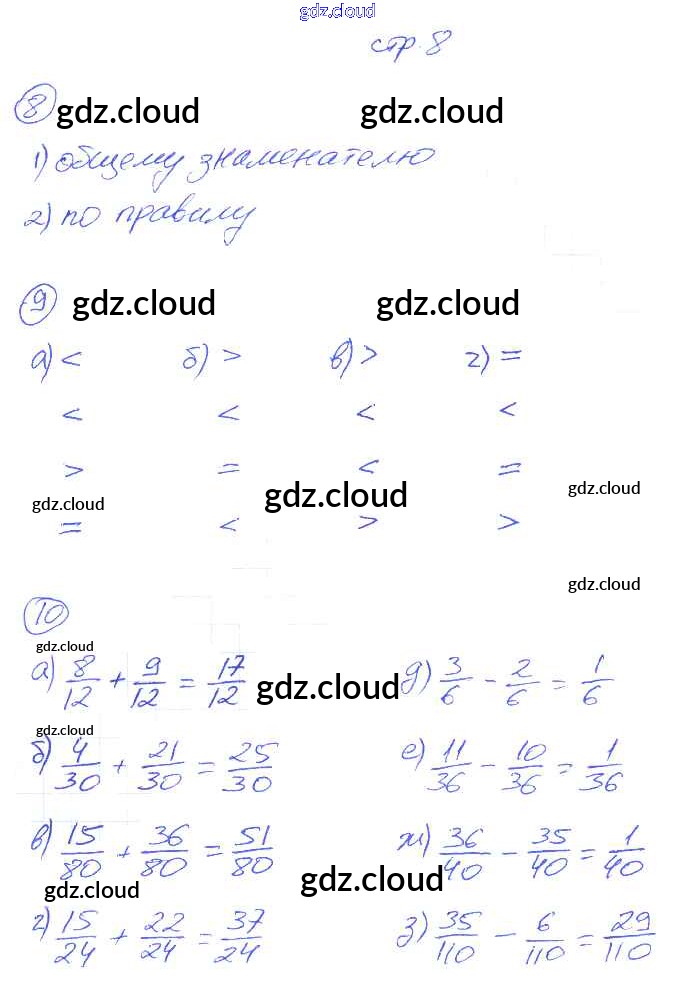 gdz.cloud
стр. 8
8 gdz.cloud gdz.cloud
1) общему знаменателю
2) по правилу
9 gdz.cloud gdz.cloud
а) < б) > в) > г) =
< < < <
> = < =
gdz.cloud gdz.cloud gdz.cloud
= < > >
gdz.cloud
10
gdz.cloud
а) 8/12 + 9/12 = 17/12 gdz.cloud д) 3/6 - 2/6 = 1/6
gdz.cloud
б) 4/30 + 21/30 = 25/30 е) 11/36 - 10/36 = 1/36
в) 15/80 + 36/80 = 51/80 ж) 36/40 - 35/40 = 1/40
gdz.cloud gdz.cloud
г) 15/24 + 22/24 = 37/24 з) 35/110 - 6/110 = 29/110